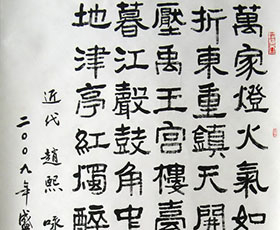 萬家燈火氣如
折東重鎮天開
壓禹王宮樓臺
暮江聲鼓角中
地津亭紅燭醉
近代趙熙咏
二〇〇九年盛